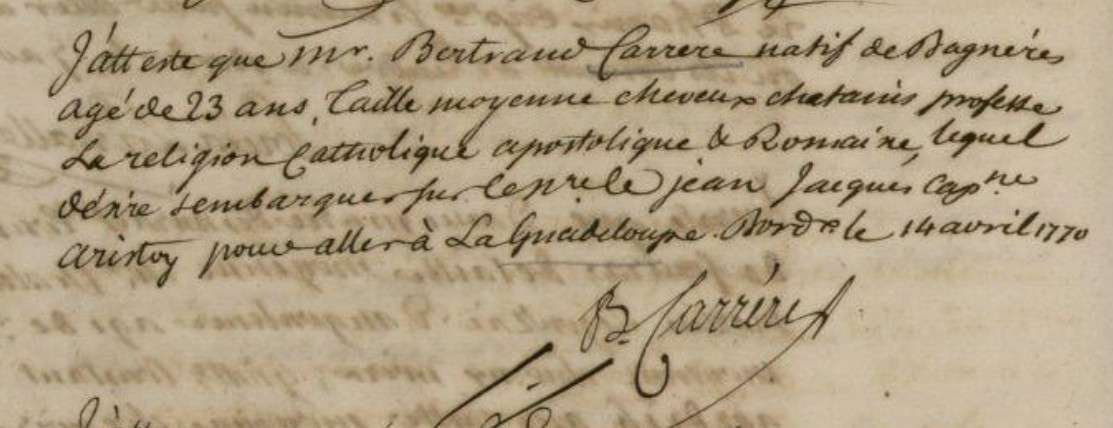 J'atteste que Mr. Bertrand Carrere natif de Bagnéres
agé de 23 ans, Taille moyenne cheveux chatains professe
La religion Catholique apostolique & Romaine, lequel
désire s'embarquer sur le nre le jean Jacques cap.ne
aristoy pour aller à La Guadeloupe. Bordx le 14 avril 1770
B. Carrére